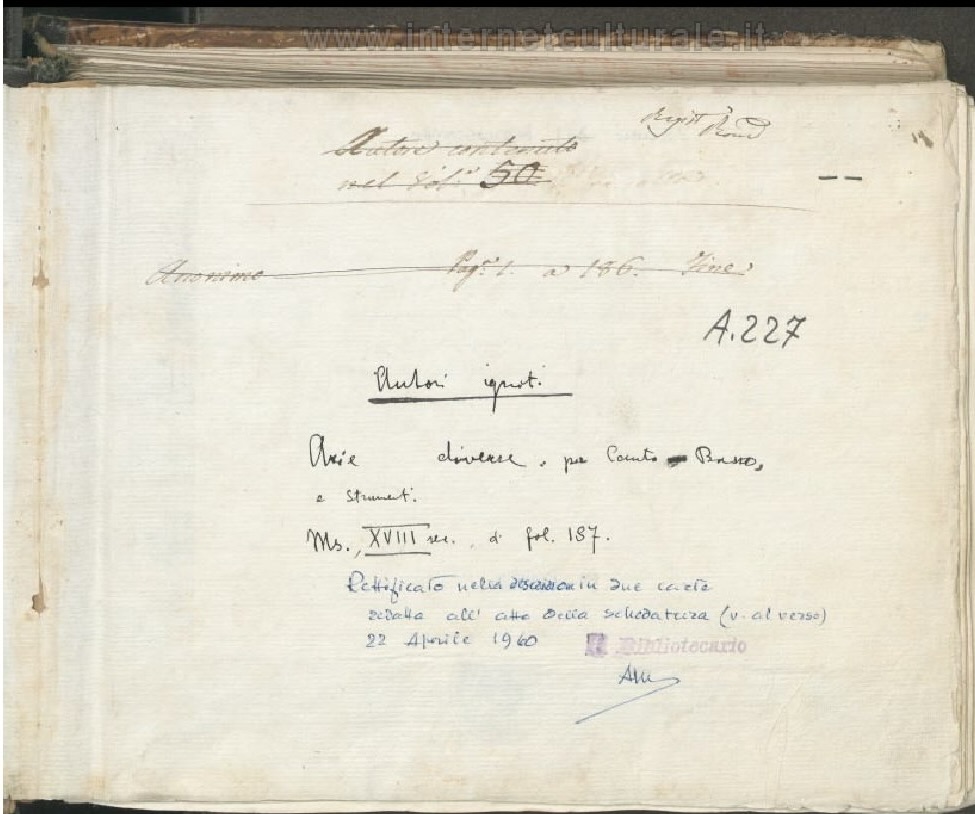 www.internetculturale.it
Autore contenuto
nel Vol.º 50.
Anonimo Pag.ª 1. a 186. Fine
A.227
Autori ignoti
Arie diverse, per Canto Basso,
e Strumenti.
Ms., XVIII sec., di fol. 187.
Rettificato nella descrizione in due carte
redatta all' atto della schedatura (v. al verso)
22 Aprile 1960
Il Bibliotecario